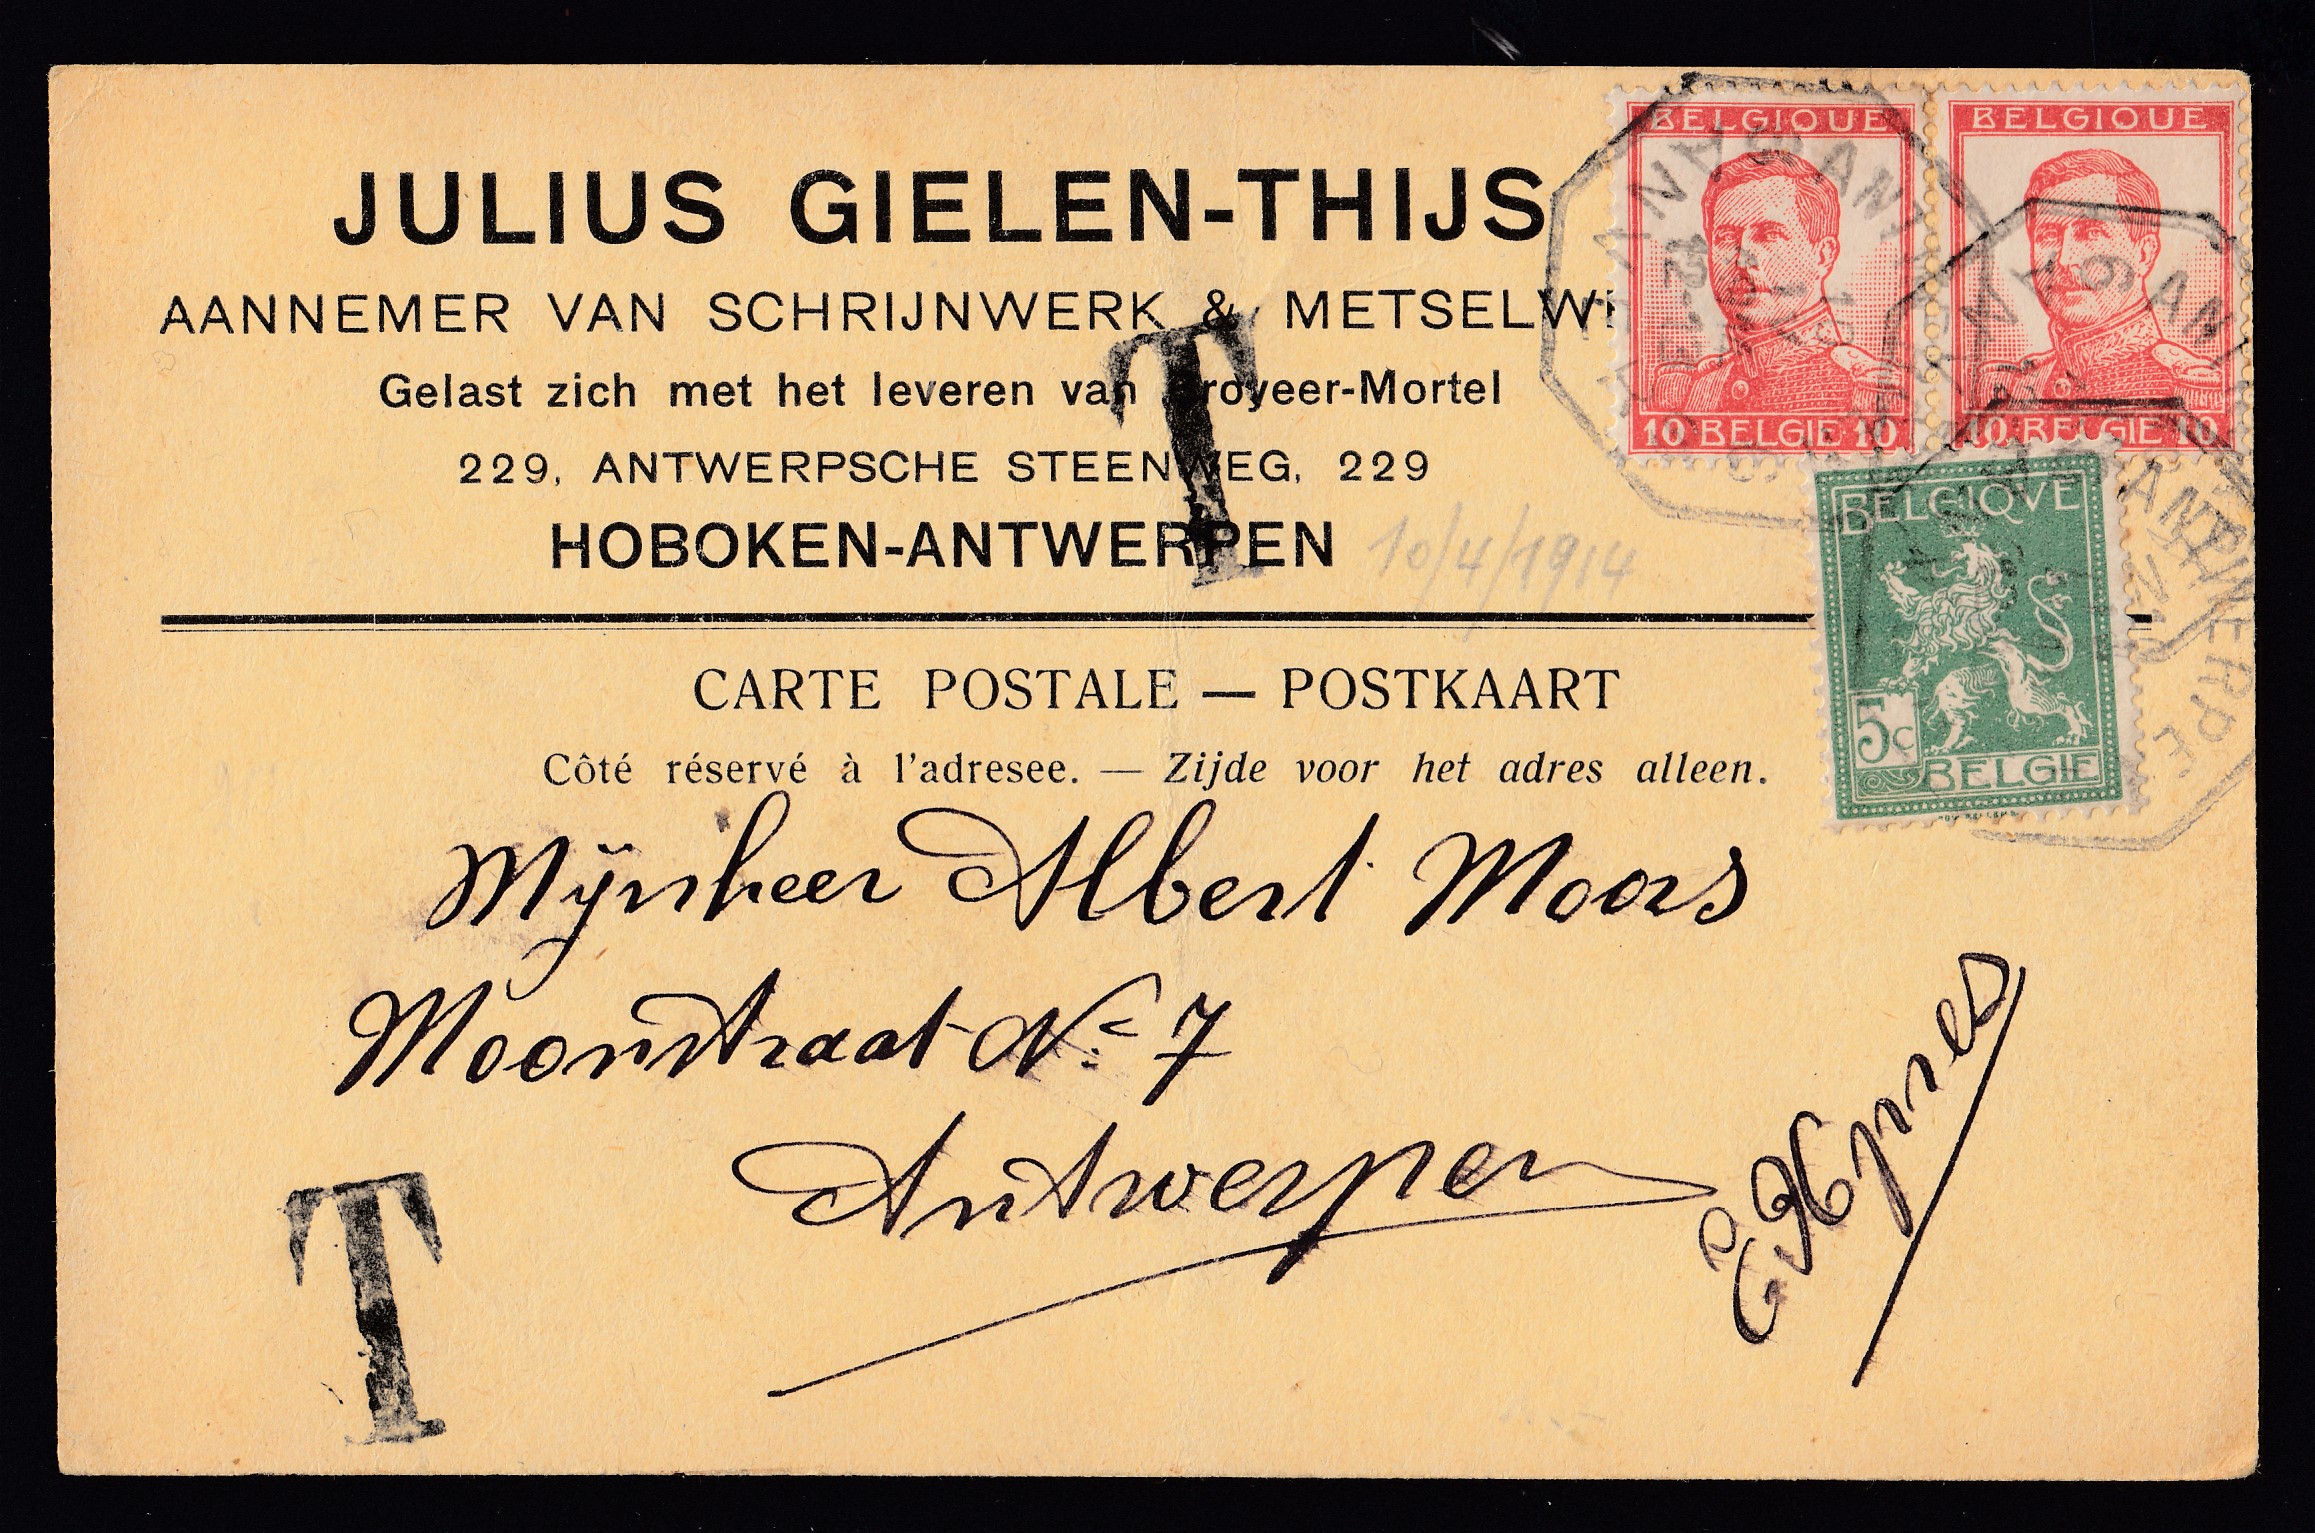 JULIUS GIELEN-THIJS
AANNEMER VAN SCHRIJNWERK & METSELW
Gelast zich met het leveren van Broyeer-Mortel
229, ANTWERPSCHE STEENWEG, 229
HOBOKEN-ANTWERPEN
10/4/1914
BELGIQUE
10 BELGIË 10
BELGIQUE
10 BELGIË 10
BELGIQVE
5c
BELGIË
T
CARTE POSTALE — POSTKAART
Côté réservé à l'adresee. — Zijde voor het adres alleen.
Mijnheer Albert Moors
Moonstraat No 7
Antwerpen
Expres
T